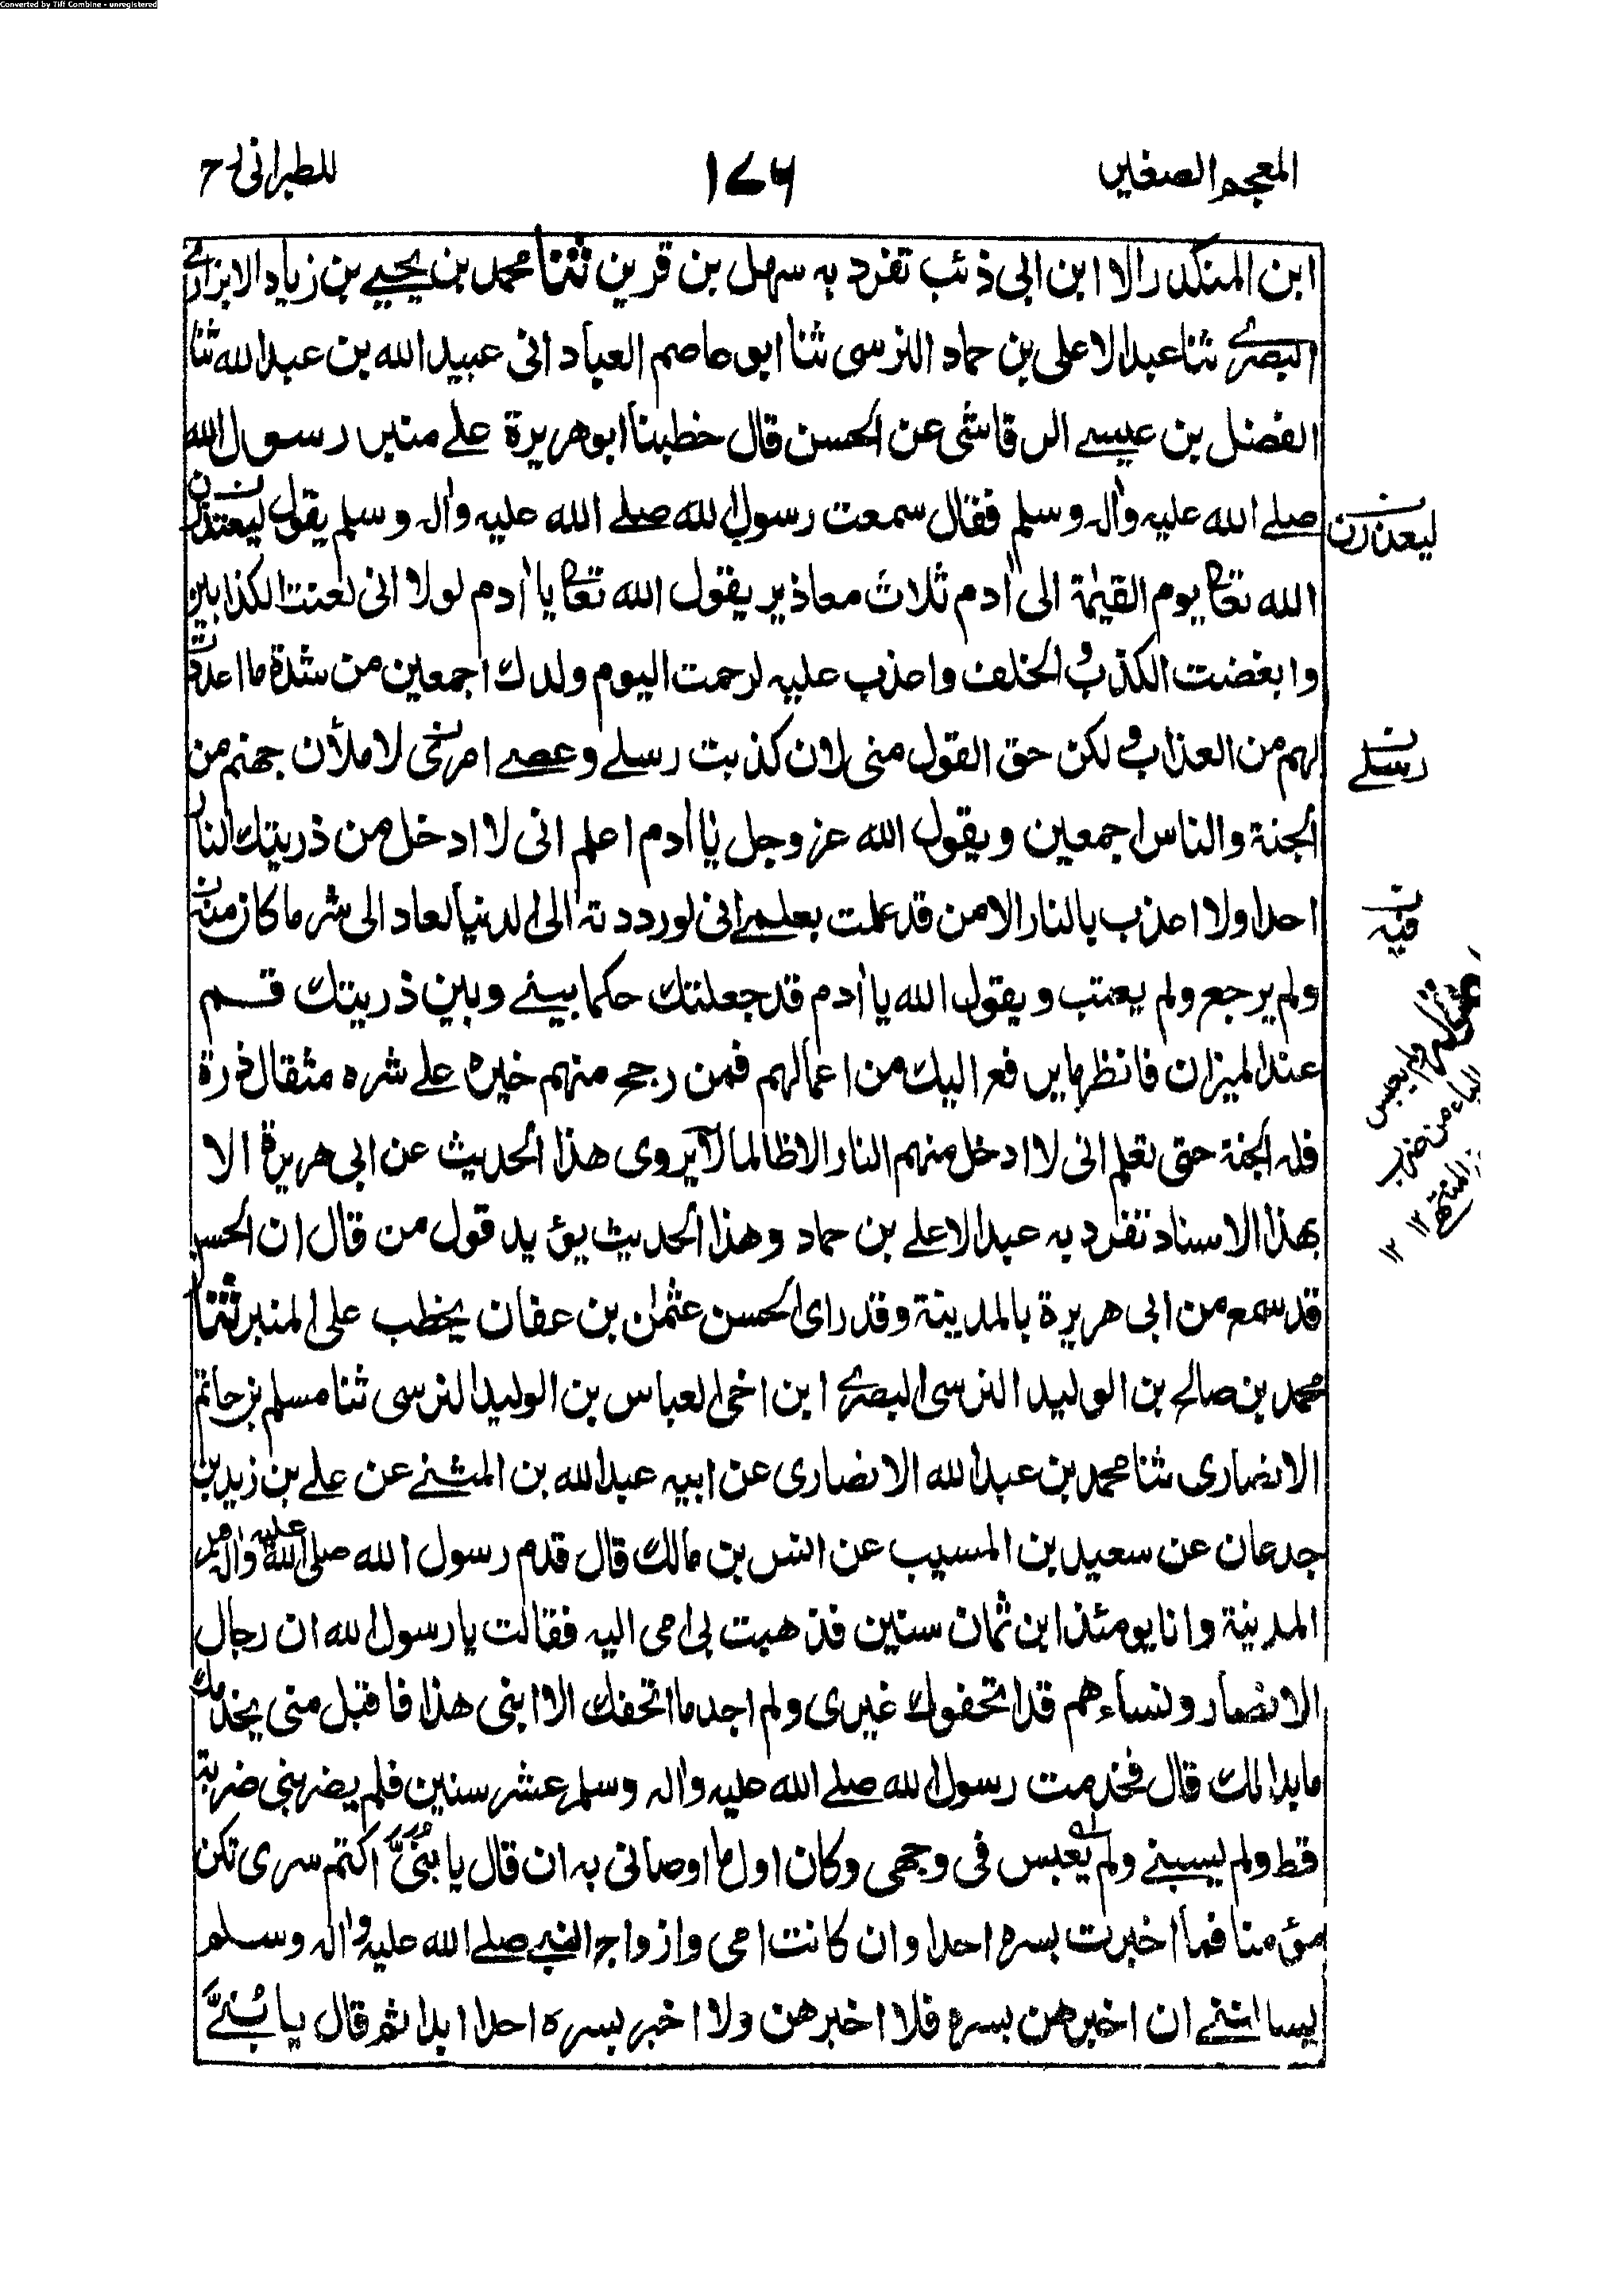 Converted by Tiff Combine - unregistered
المعجم الصغير
١٧٦
للطبرانی
ابن المنكدر الا ابن ابی ذئب تفرد به سهل بن قرين ثنا محمد بن يحيے بن زياد الابزاری
البصرے ثنا عبد الاعلی بن حماد النرسی ثنا ابو عاصم العبادانی عبيد الله بن عبد الله ثنا
الفضل بن عيسے الرقاشی عن الحسن قال خطبنا ابو هريرة علے منبر رسول الله
صلے الله عليه واٰله وسلم فقال سمعت رسول الله صلے الله عليه واٰله وسلم يقول ليعتذرن
ليعذرن
الله تعالٰی يوم القيٰمة الی اٰدم ثلاث معاذير يقول الله تعالٰی يا اٰدم لولا انی لعنت الكذابين
وابغضت الكذب والخلف واعذب عليه لرحمت اليوم ولدك اجمعين من شدة ما اعددت
لهم من العذاب و لكن حق القول منی لان كذبت رسلے وعصے امری لاملأن جهنم من
رسلے
الجنة والناس اجمعين ويقول الله عز وجل يا اٰدم اعلم انی لا ادخل من ذريتك النار
احدا ولا اعذب بالنار الا من قد علمت بعلمے انی لو رددته الی الدنيا لعاد الی شر ما كان منه
فيه
ولم يرجع ولم يعتب ويقول الله يا اٰدم قد جعلتك حكما بينے وبين ذريتك قم
عند الميزان فانظر ما يرفع اليك من اعمالهم فمن رجح منهم خيره علے شره مثقال ذرة
فله الجنة حتی تعلم انی لا ادخل منهم النار الا ظالما لا يروی هذا الحديث عن ابی هريرة الا
بهذا الاسناد تفرد به عبد الاعلے بن حماد وهذا الحديث يؤيد قول من قال ان الحسن
قد سمع من ابی هريرة بالمدينة وقد رای الحسن عثمٰن بن عفان يخطب علی المنبر ثنا
محمد بن صالح بن الوليد النرسی البصرے ابن اخی العباس بن الوليد النرسی ثنا مسلم بن حاتم
الانصاری ثنا محمد بن عبد الله الانصاری عن ابيه عبد الله بن المثنے عن علے بن زيد بن
جدعان عن سعيد بن المسيب عن انس بن مالك قال قدم رسول الله صلی الله عليه واٰله
المدينة وانا يومئذ ابن ثمان سنين فذهبت بی امی اليه فقالت يا رسول الله ان رجال
الانصار ونساءهم قد اتحفوك غيری ولم اجد ما اتحفك الا ابنی هذا فاقبل منی يخدمك
ما بدا لك قال فخدمت رسول الله صلے الله عليه واٰله وسلم عشر سنين فلم يضربنی ضربة
قط ولم يسبنے ولم يعبس فی وجهی وكان اول ما اوصانی به ان قال يا بُنَیَّ اكتم سری تكن
مؤمنا فما اخبرت بسره احدا وان كانت امی وازواج النبے صلے الله عليه واٰله وسلم
يسالننے ان اخبرهن بسره فلا اخبرهن ولا اخبر بسره احدا ابدا ثم قال يا بُنَےَّ